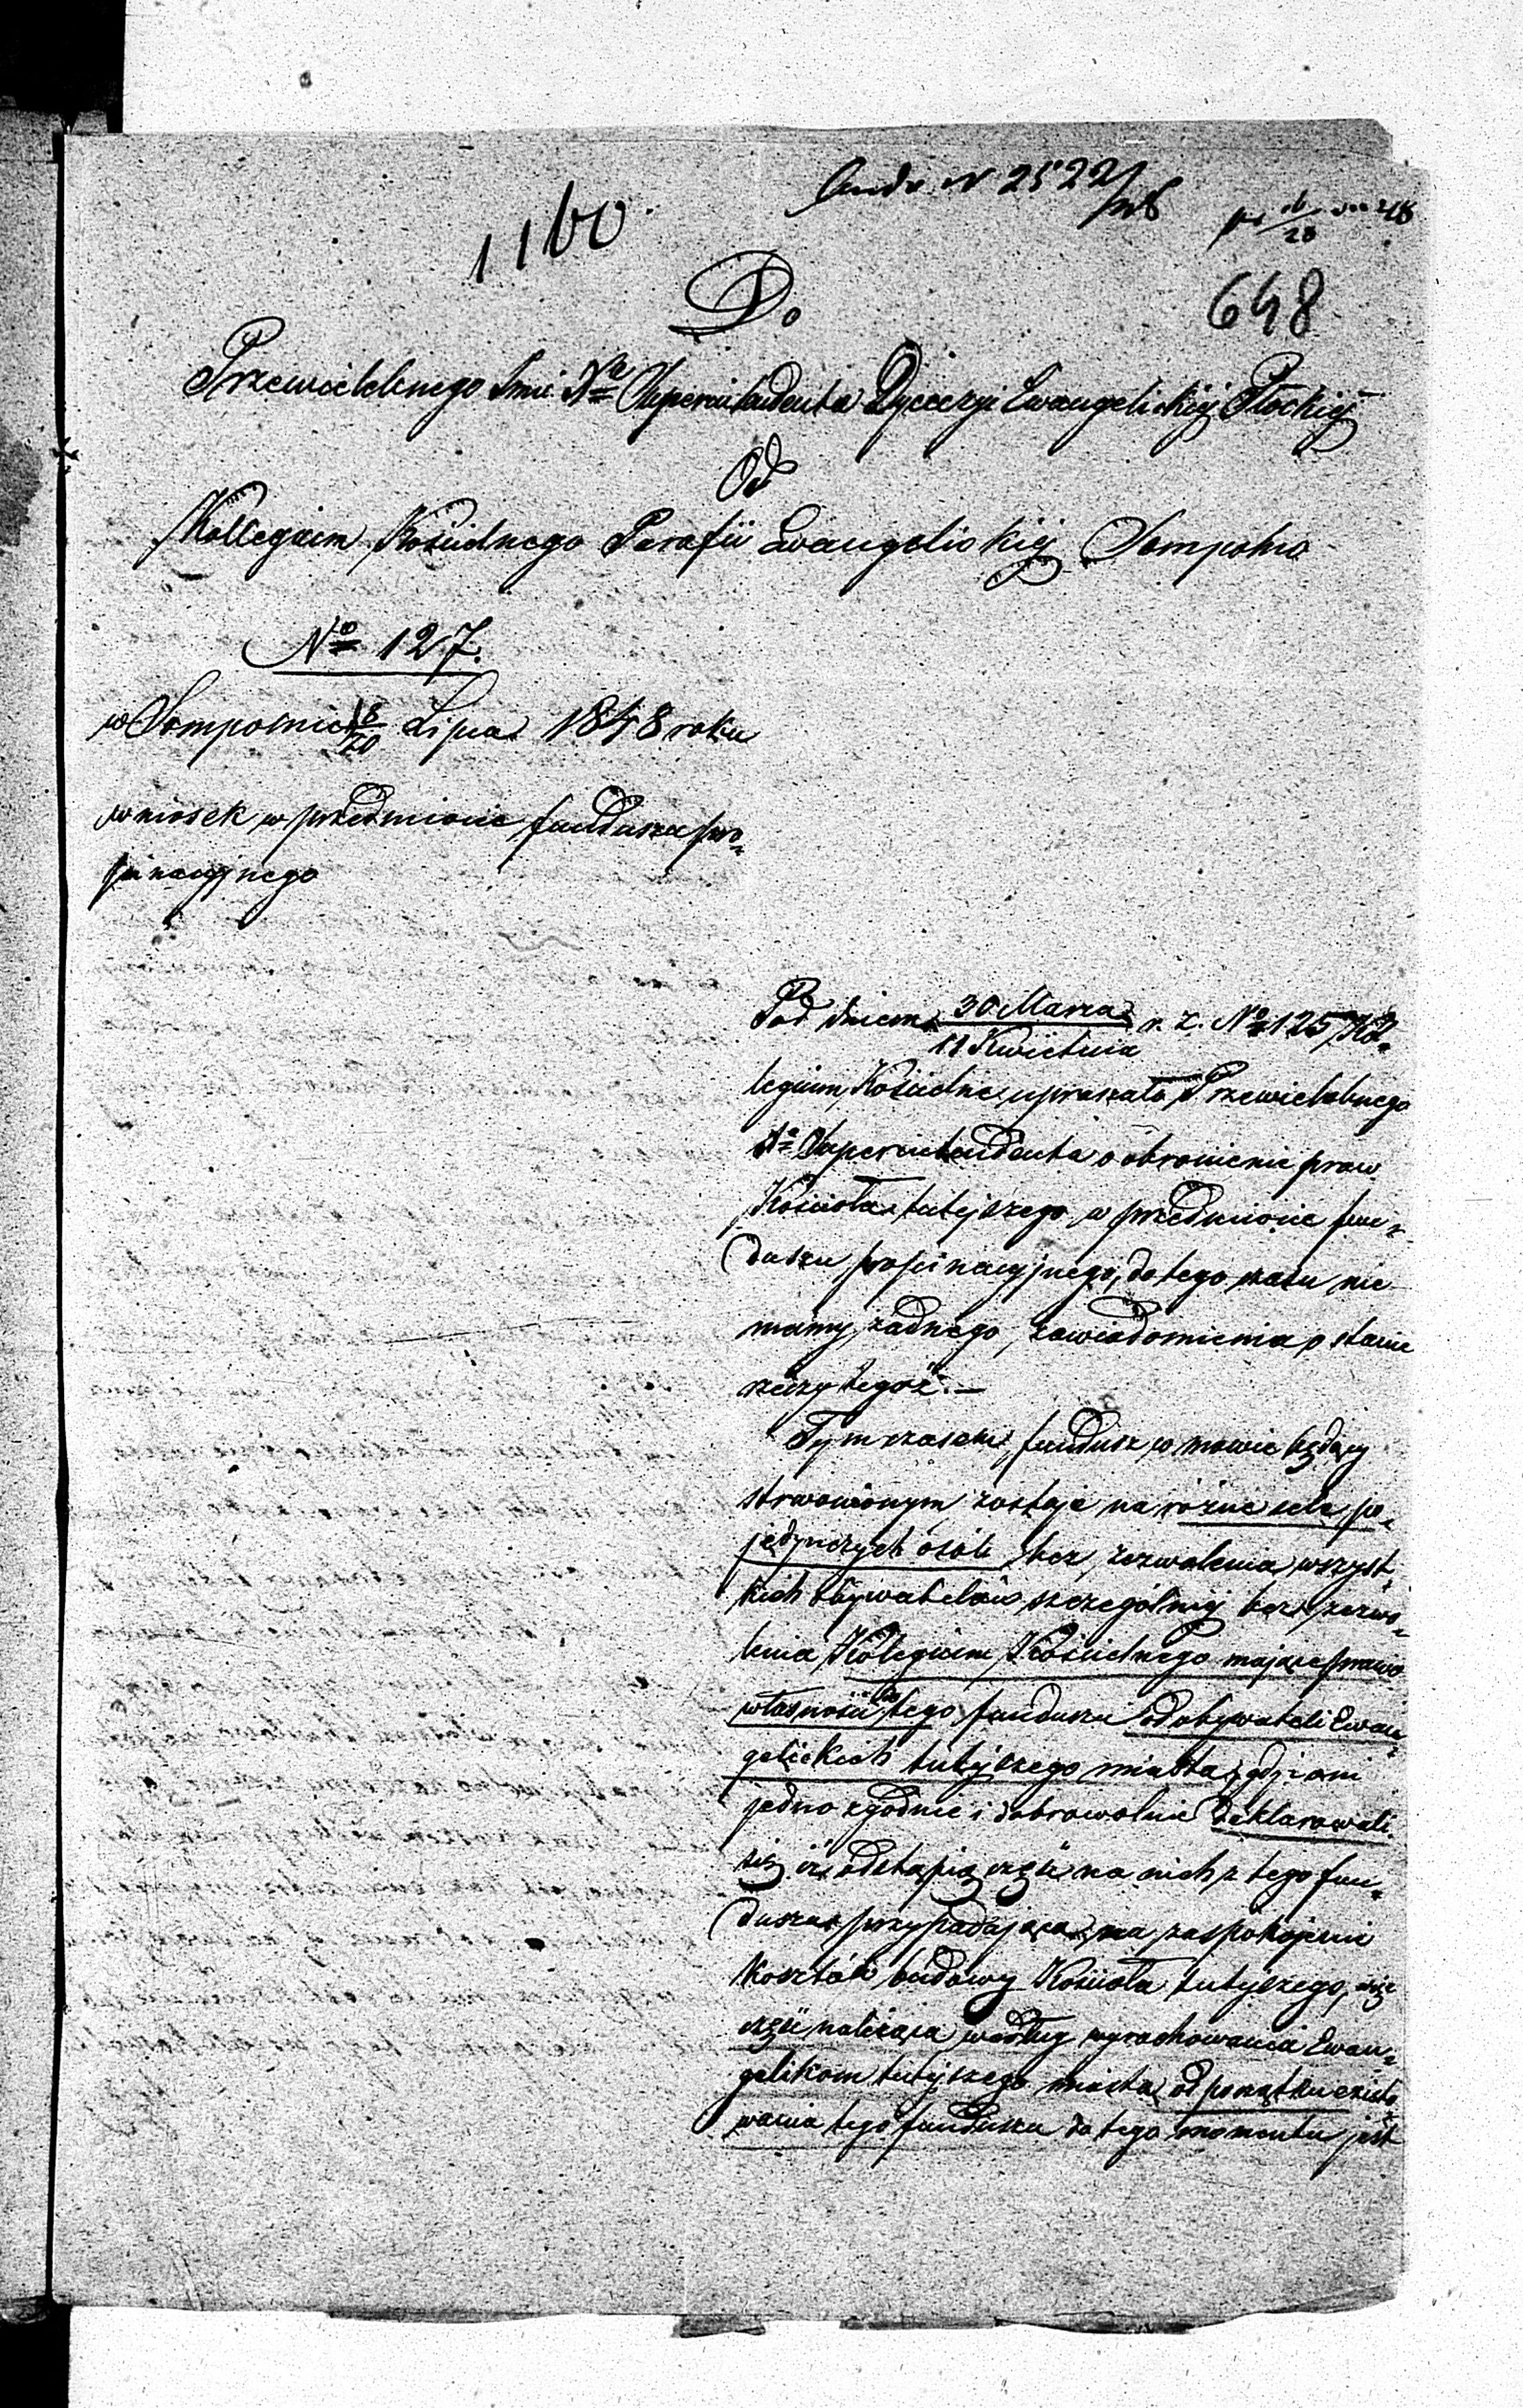 N 2522
1160
648
Do
Przewielebnego Jmci Xa Superintendenta Dyecezyi Ewangelickiej Płockiej
Od
Kollegium Kościelnego Parafii Ewangelickiej Sompolno
No 127.
w Sompolnie 8/20 Lipca 1848 roku
wniosek w przedmiocie funduszu pro-
pinacyjnego
Pod dniem 30 Marca / 11 Kwietnia r. z. No 125 Kol-
legium Kościelne upraszało Przewielebnego
Xa Superintendenta o obronienie praw
Kościoła tutejszego w przedmiocie fun-
duszu propinacyjnego, do tego czasu nie
mamy żadnego zawiadomienia o stanie
rzeczy tegoż.—
Tymczasem fundusz w mowie będący
strwonionym zostaje na różne cele po-
jedynczych osób bez zezwolenia wszyst-
kich obywatelów szczególniej bez zezwo-
lenia Kolegium Kościelnego mające prawo
własności do tego funduszu od obywateli Ewan-
gelickich tutejszego miasta, gdyż oni
jednozgodnie i dobrowolnie deklarowali
się iż odstąpią część na nich z tego fun-
duszu przypadającą na zaspokojenie
kosztów budowy Kościoła tutejszego,
część należąca według wyrachowania Ewan-
gelikom tutejszego miasta od początku existo-
wania tego funduszu do tego momentu jest